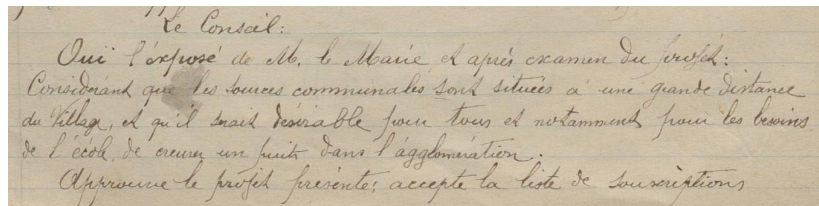 Le Conseil:
Ouï l'éxposé de M. le Marie et après examen du projet:
Considérant que les sources communales sont situées à une grande distance
du Village, et qu'il serait désirable pour tous et notamment pour les besoins
de l'école de creuser un puits dans l'agglomération.
Approuve le projet présenté; accepte la liste de souscriptions